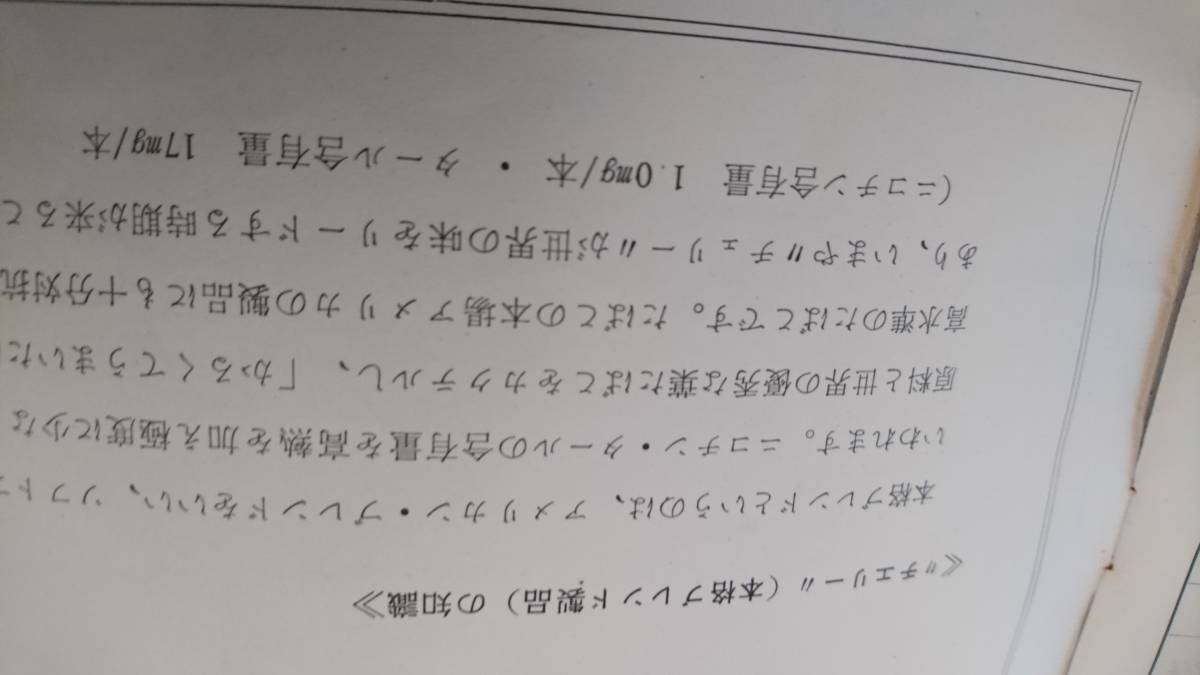 ≪〃チェリー〃（本格ブレンド製品）の知識≫
本格ブレンドというのは、アメリカン・ブレンドをいい、ソフト
いわれます。ニコチン・タールの含有量を高熱を加え極度に少な
原料と世界の優秀な葉たばこをカクテルし、「かるくてうまいた
高水準のたばこです。たばこの本場アメリカの製品にも十分対抗
あり、いまや〃チェリー〃が世界の味をリードする時期が来ると
（ニコチン含有量　1.0mg/本　・　タール含有量　17mg/本